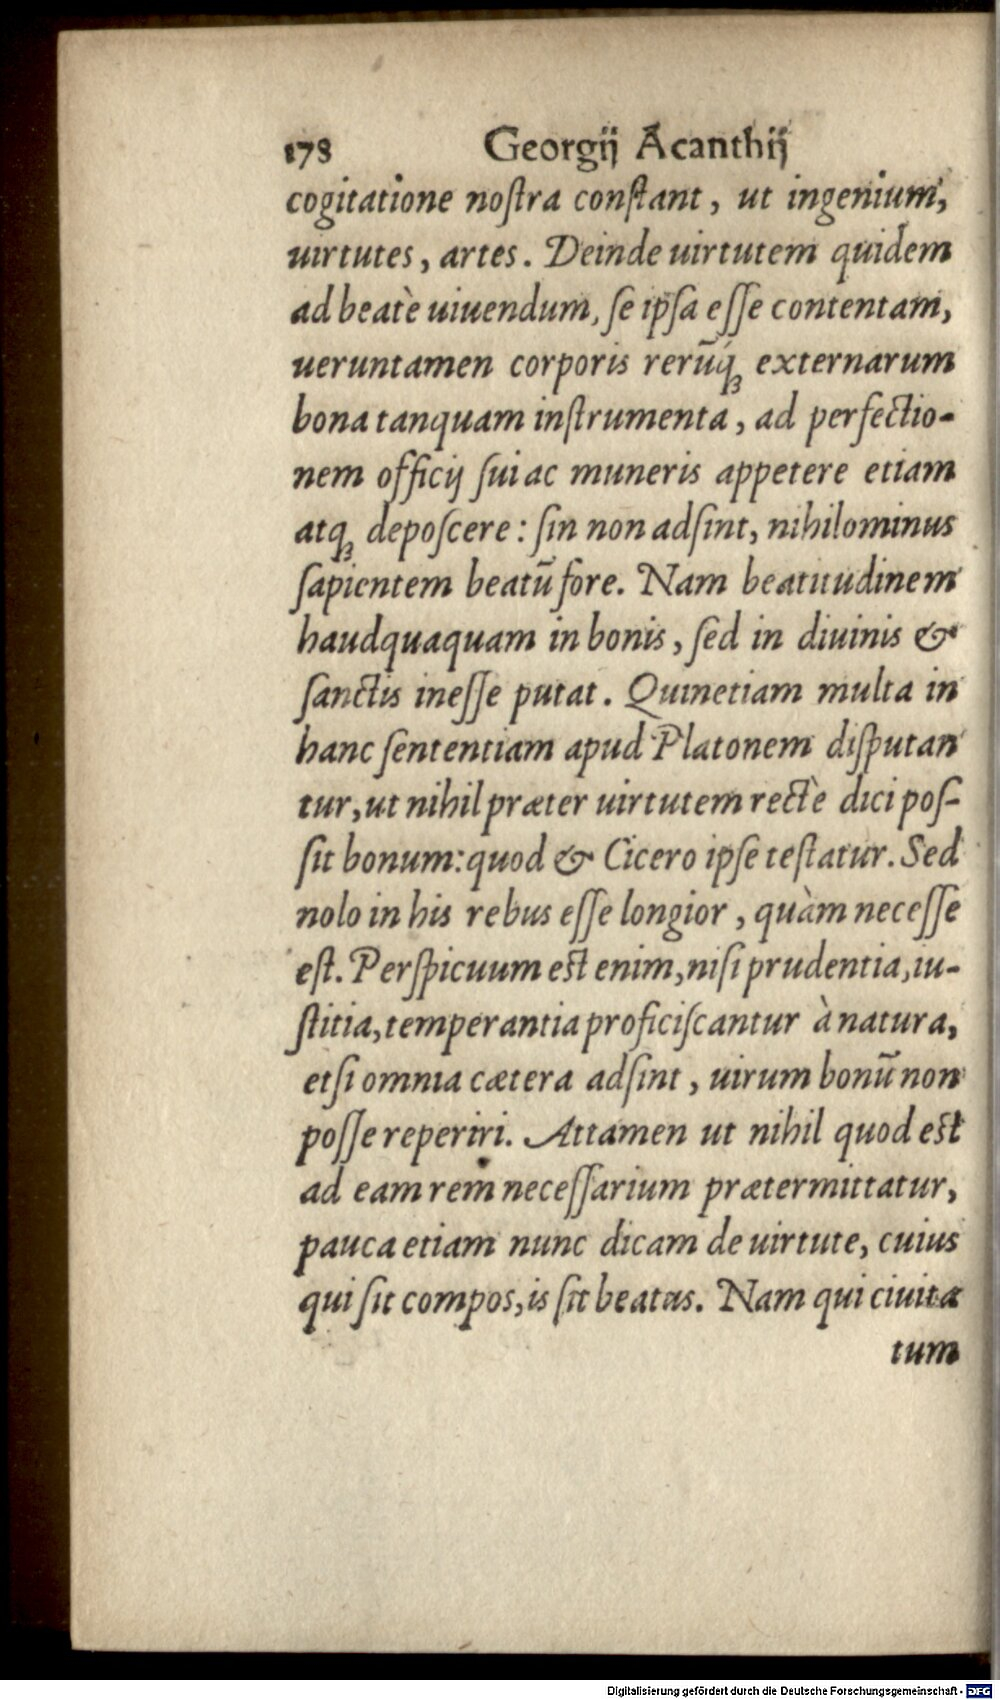 178 Georgij Acanthij
cogitatione noſtra conſtant, ut ingenium,
uirtutes, artes. Deinde uirtutem quidem
ad beatè uiuendum, ſe ipſa eſſe contentam,
ueruntamen corporis rerūq́ꝫ externarum
bona tanquam inſtrumenta, ad perfectio-
nem officij ſui ac muneris appetere etiam
atqꝫ depoſcere: ſin non adſint, nihilominus
ſapientem beatū fore. Nam beatitudinem
haudquaquam in bonis, ſed in diuinis &
ſanctis ineſſe putat. Quinetiam multa in
hanc ſententiam apud Platonem diſputan
tur, ut nihil præter uirtutem rectè dici poſ-
ſit bonum: quod & Cicero ipſe teſtatur. Sed
nolo in his rebus eſſe longior, quàm neceſſe
eſt. Perſpicuum eſt enim, niſi prudentia, iu-
ſtitia, temperantia proficiſcantur à natura,
etſi omnia cætera adſint, uirum bonū non
poſſe reperiri. Attamen ut nihil quod eſt
ad eam rem neceſſarium prætermittatur,
pauca etiam nunc dicam de uirtute, cuius
qui ſit compos, is ſit beatus. Nam qui ciuita
tum
Digitalisierung gefördert durch die Deutsche Forschungsgemeinschaft - DFG